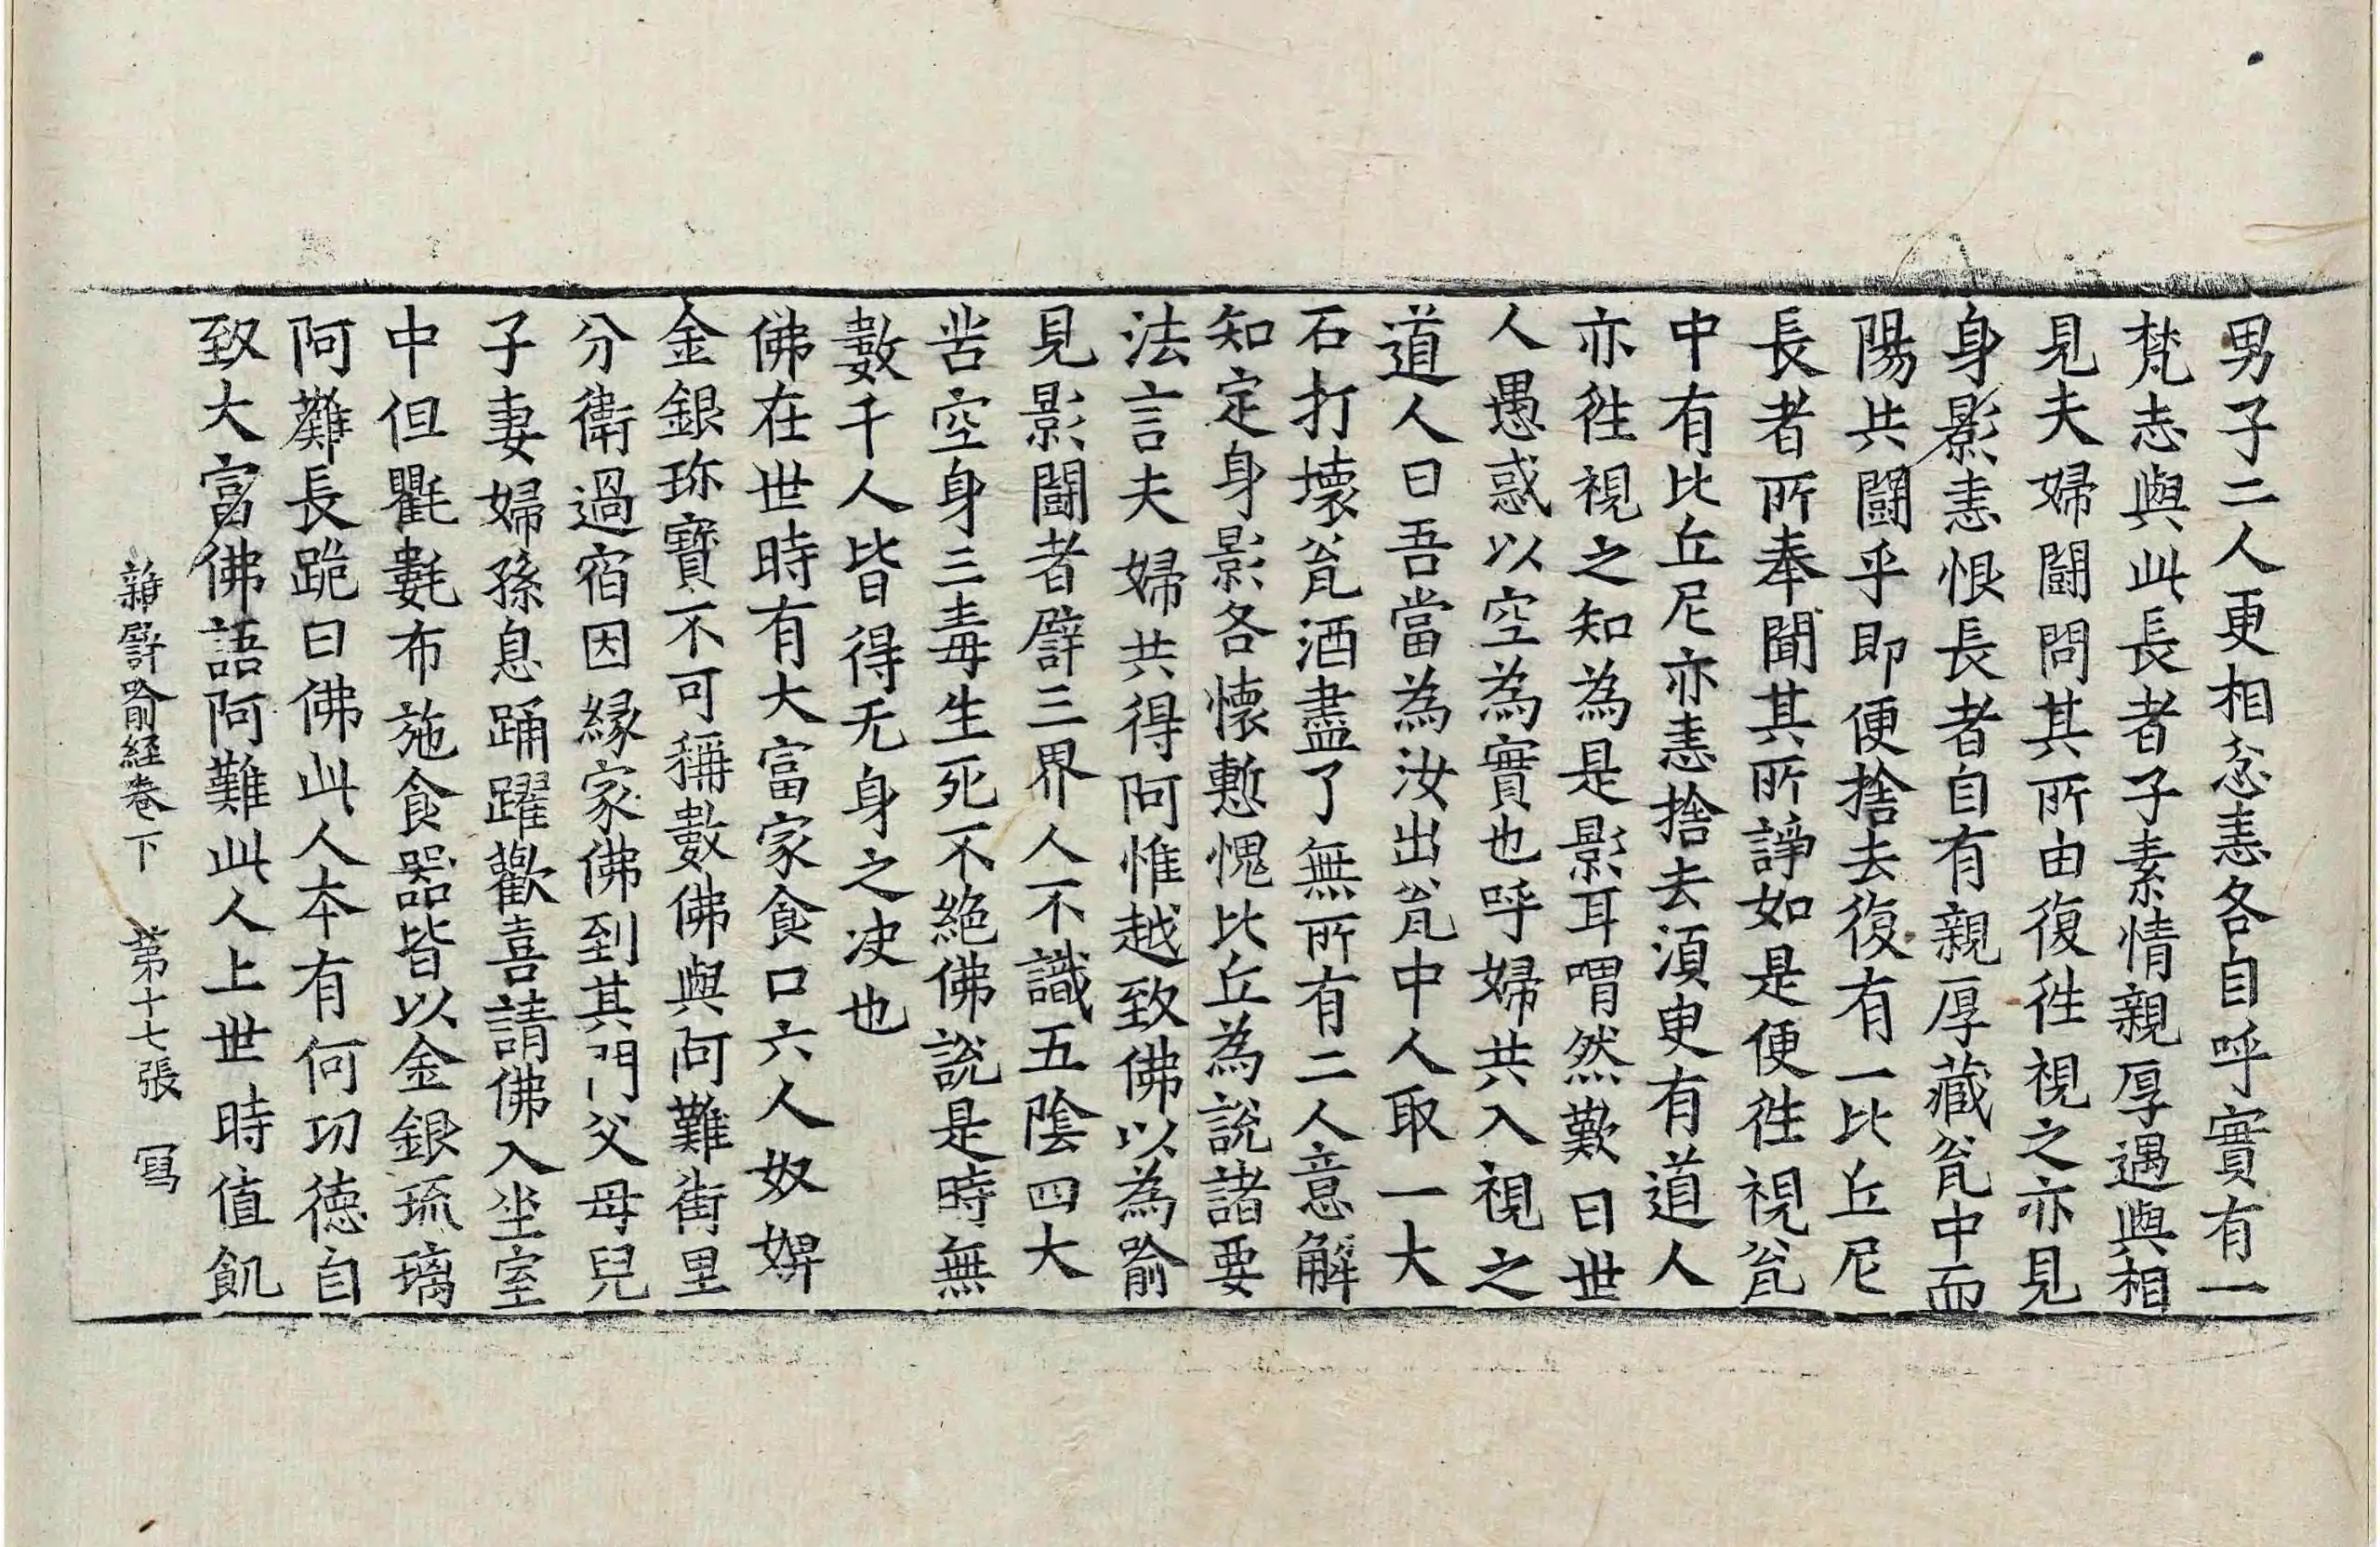 男子二人更相忿恚各自呼實有一
梵志與此長者子素情親厚遇與相
見夫婦鬪問其所由復往視之亦見
身影恚恨長者自有親厚藏瓮中而
陽共鬪乎即便捨去復有一比丘尼
長者所奉聞其所諍如是便往視瓮
中有比丘尼亦恚捨去須臾有道人
亦往視之知為是影耳喟然歎曰世
人愚惑以空為實也呼婦共入視之
道人曰吾當為汝出瓮中人取一大
石打壞瓮酒盡了無所有二人意解
知定身影各懷慙愧比丘為說諸要
法言夫婦共得阿惟越致佛以為喻
見影鬪者譬三界人不識五陰四大
苦空身三毒生死不絕佛說是時無
數千人皆得无身之决也
佛在世時有大富家食口六人奴婢
金銀珎寶不可稱數佛與阿難街里
分衛過宿因緣家佛到其門父母兒
子妻婦孫息踊躍歡喜請佛入坐室
中但氍㲣布施食器皆以金銀琉璃
阿難長跪曰佛此人本有何功德自
致大富佛語阿難此人上世時值飢
雜譬喻經卷下 第十七張 寫